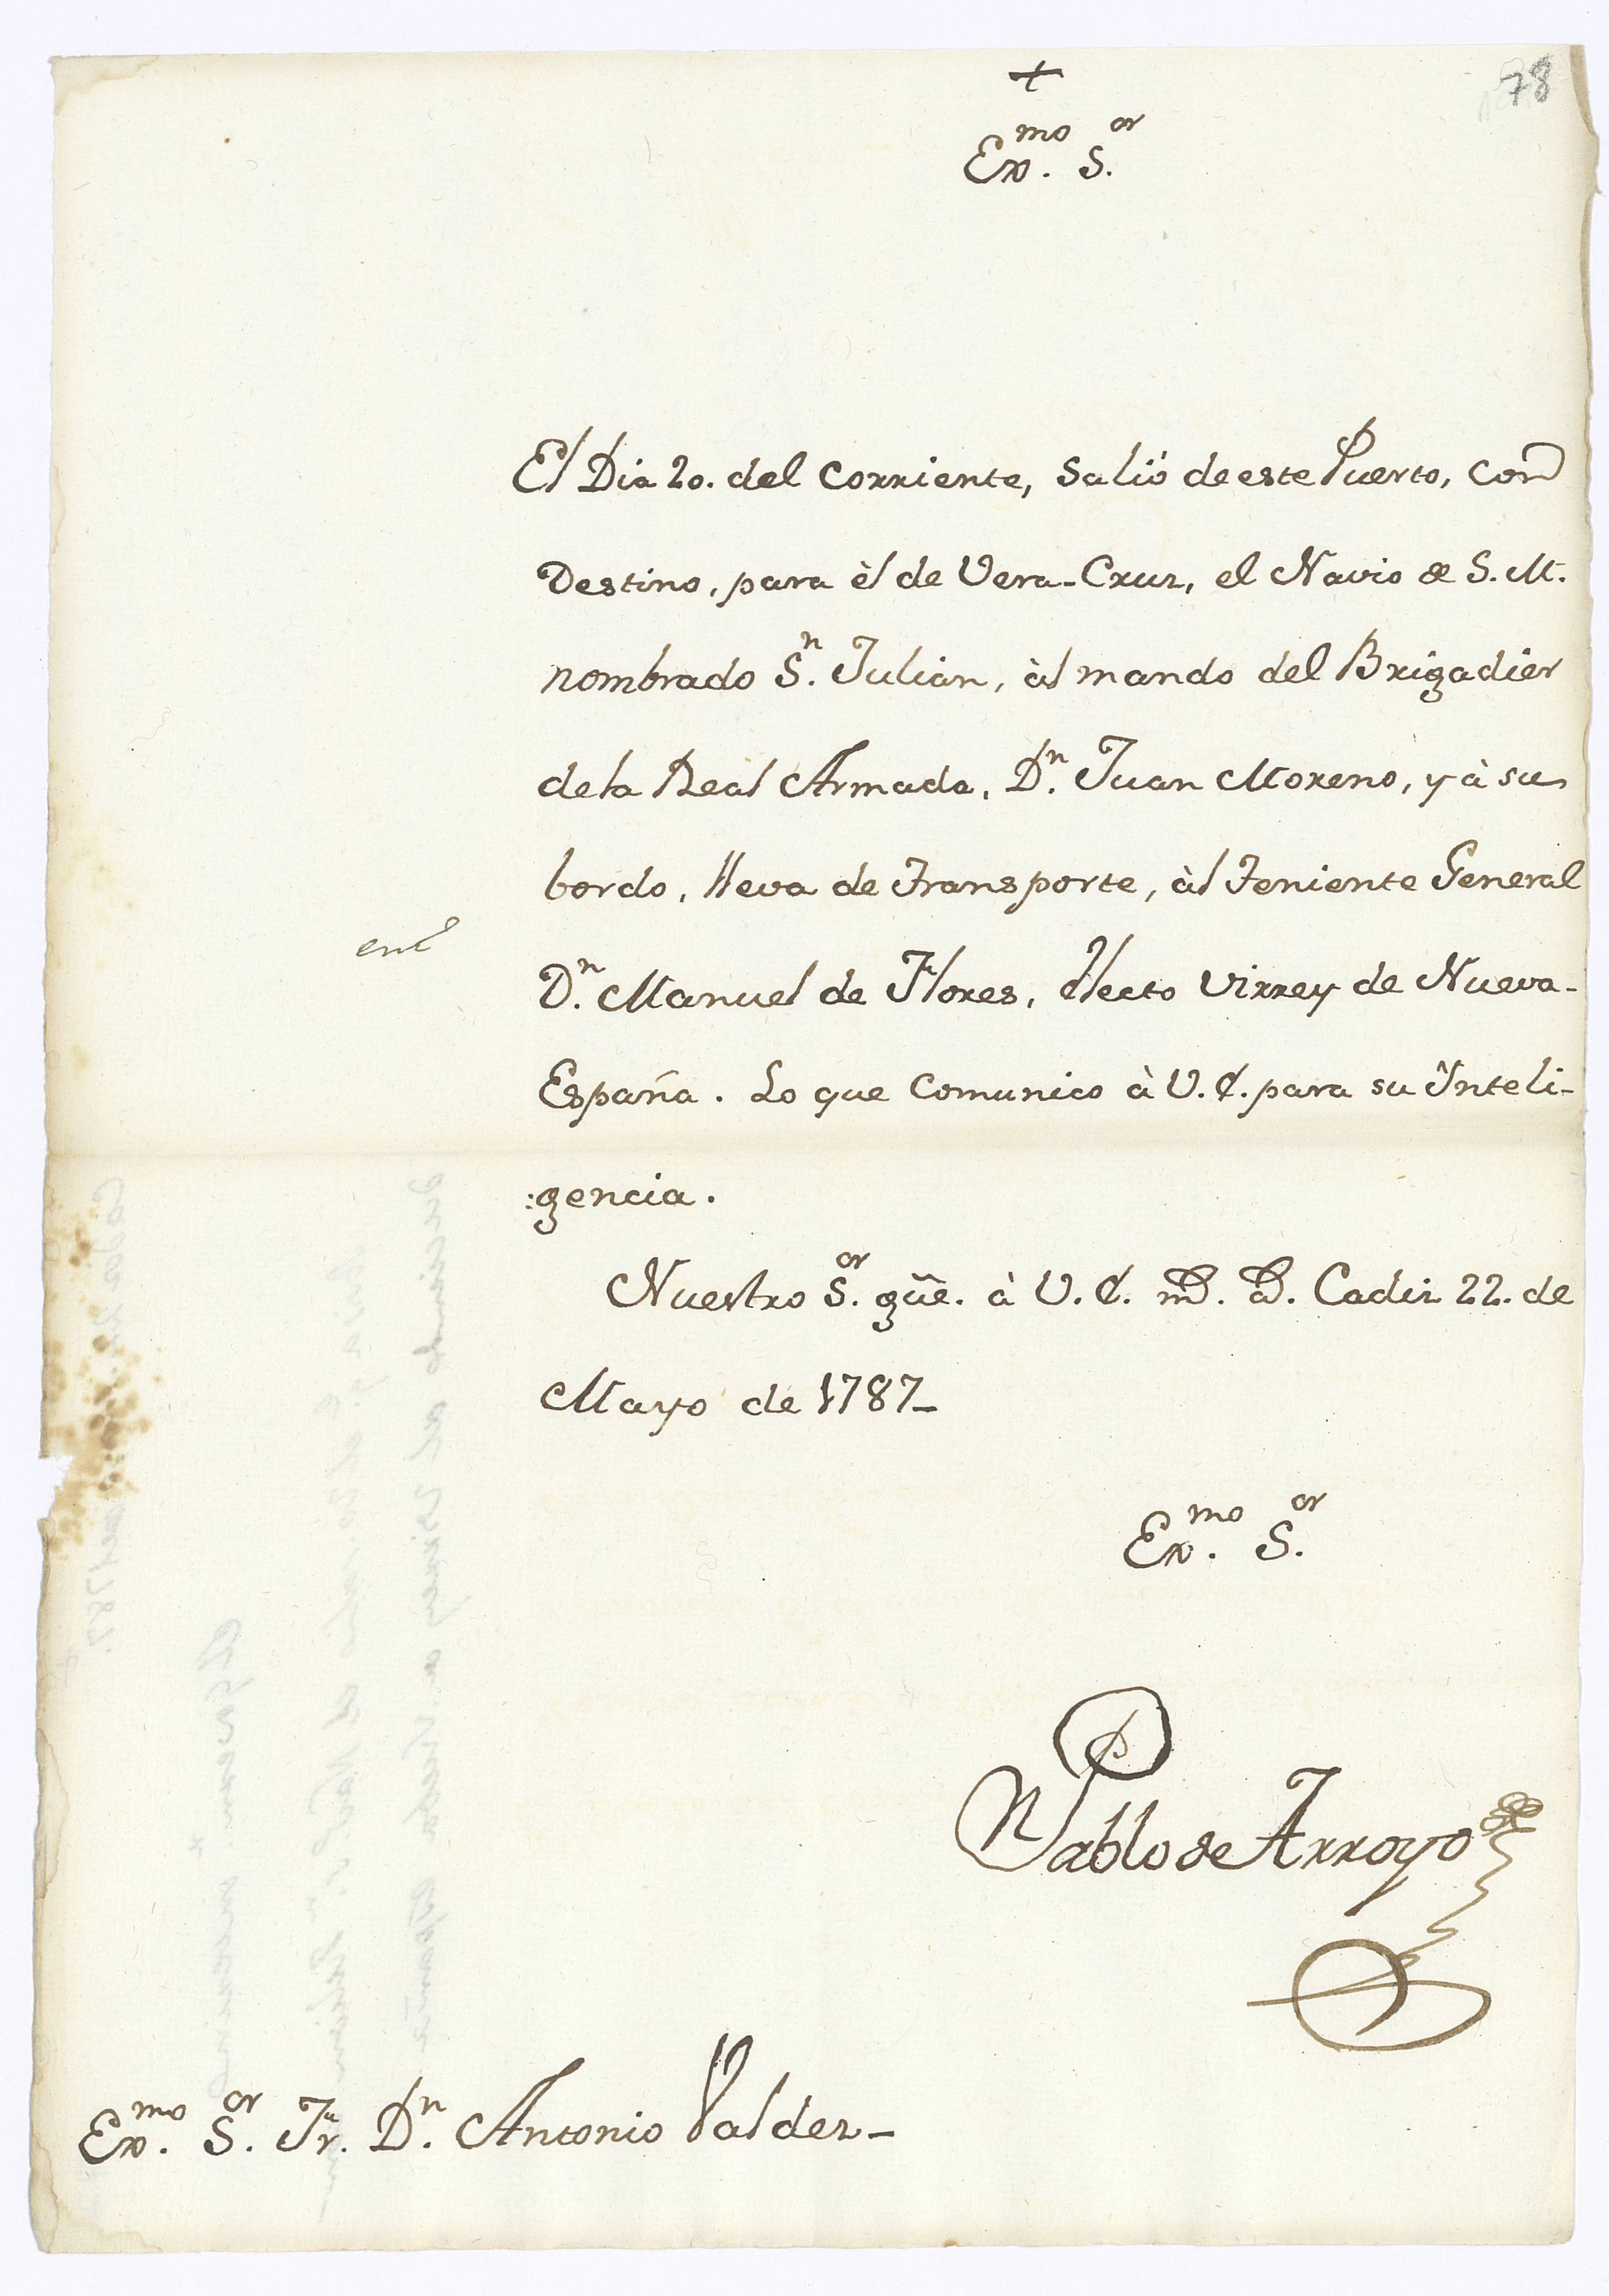 78
+
Ex.mo S.or
El Dia 20. del corriente, salió de este Puerto, con
Destino, para èl de Vera-Cruz, el Navio de S. M.
nombrado S.n Julian, àl mando del Brigadier
dela Real Armada, D.n Juan Moreno, y à su
bordo, lleva de Transporte, àl Teniente General
ent.
D.n Manuel de Flores, Electo Virrey de Nueva-
España. Lo que comunico à V. E. para su Ynteli-
:gencia.
Nuestro S.or gũe. à V. E. m.s a.s Cadiz 22. de
Mayo de 1787-
Ex.mo S.or
Pablo de Arroyo
Ex.mo S.or Fr. D.n Antonio Valdez-